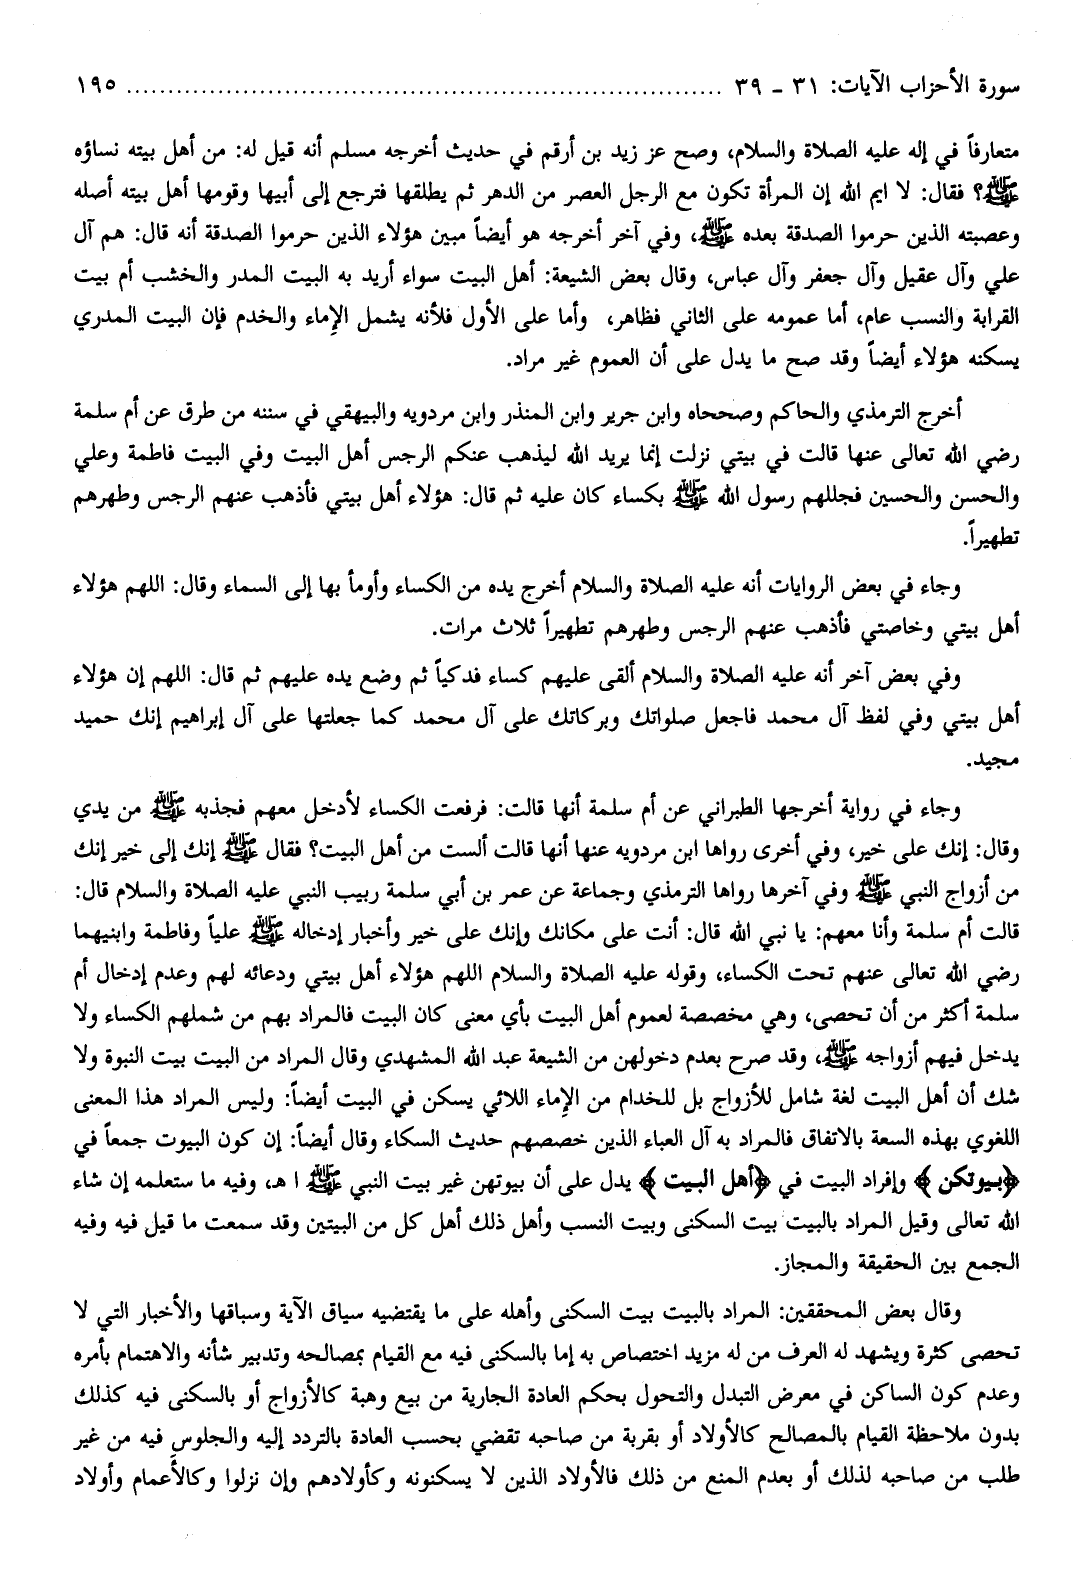 سورة الأحزاب الآيات: ٣١ - ٣٩ ........................................................................ ١٩٥
متعارفاً في إله عليه الصلاة والسلام، وصح عز زيد بن أرقم في حديث أخرجه مسلم أنه قيل له: من أهل بيته نساؤه
ﷺ؟ فقال: لا ايم الله إن المرأة تكون مع الرجل العصر من الدهر ثم يطلقها فترجع إلى أبيها وقومها أهل بيته أصله
وعصبته الذين حرموا الصدقة بعده ﷺ، وفي آخر أخرجه هو أيضاً مبين هؤلاء الذين حرموا الصدقة أنه قال: هم آل
علي وآل عقيل وآل جعفر وآل عباس، وقال بعض الشيعة: أهل البيت سواء أريد به البيت المدر والخشب أم بيت
القرابة والنسب عام، أما عمومه على الثاني فظاهر، وأما على الأول فلأنه يشمل الإِماء والخدم فإن البيت المدري
يسكنه هؤلاء أيضاً وقد صح ما يدل على أن العموم غير مراد.
أخرج الترمذي والحاكم وصححاه وابن جرير وابن المنذر وابن مردويه والبيهقي في سننه من طرق عن أم سلمة
رضي الله تعالى عنها قالت في بيتي نزلت إنما يريد الله ليذهب عنكم الرجس أهل البيت وفي البيت فاطمة وعلي
والحسن والحسين فجللهم رسول الله ﷺ بكساء كان عليه ثم قال: هؤلاء أهل بيتي فأذهب عنهم الرجس وطهرهم
تطهيراً.
وجاء في بعض الروايات أنه عليه الصلاة والسلام أخرج يده من الكساء وأومأ بها إلى السماء وقال: اللهم هؤلاء
أهل بيتي وخاصتي فأذهب عنهم الرجس وطهرهم تطهيراً ثلاث مرات.
وفي بعض آخر أنه عليه الصلاة والسلام ألقى عليهم كساء فدكياً ثم وضع يده عليهم ثم قال: اللهم إن هؤلاء
أهل بيتي وفي لفظ آل محمد فاجعل صلواتك وبركاتك على آل محمد كما جعلتها على آل إبراهيم إنك حميد
مجيد.
وجاء في رواية أخرجها الطبراني عن أم سلمة أنها قالت: فرفعت الكساء لأدخل معهم فجذبه ﷺ من يدي
وقال: إنك على خير، وفي أخرى رواها ابن مردويه عنها أنها قالت ألست من أهل البيت؟ فقال ﷺ إنك إلى خير إنك
من أزواج النبي ﷺ وفي آخرها رواها الترمذي وجماعة عن عمر بن أبي سلمة ربيب النبي عليه الصلاة والسلام قال:
قالت أم سلمة وأنا معهم: يا نبي الله قال: أنت على مكانك وإنك على خير وأخبار إدخاله ﷺ علياً وفاطمة وابنيهما
رضي الله تعالى عنهم تحت الكساء، وقوله عليه الصلاة والسلام اللهم هؤلاء أهل بيتي ودعائه لهم وعدم إدخال أم
سلمة أكثر من أن تحصى، وهي مخصصة لعموم أهل البيت بأي معنى كان البيت فالمراد بهم من شملهم الكساء ولا
يدخل فيهم أزواجه ﷺ، وقد صرح بعدم دخولهن من الشيعة عبد الله المشهدي وقال المراد من البيت بيت النبوة ولا
شك أن أهل البيت لغة شامل للأزواج بل للخدام من الإِماء اللائي يسكن في البيت أيضاً: وليس المراد هذا المعنى
اللغوي بهذه السعة بالاتفاق فالمراد به آل العباء الذين خصصهم حديث السكاء وقال أيضاً: إن كون البيوت جمعاً في
﴿بيوتكن﴾ وإفراد البيت في ﴿أهل البيت﴾ يدل على أن بيوتهن غير بيت النبي ﷺ ا هـ، وفيه ما ستعلمه إن شاء
الله تعالى وقيل المراد بالبيت بيت السكنى وبيت النسب وأهل ذلك أهل كل من البيتين وقد سمعت ما قيل فيه وفيه
الجمع بين الحقيقة والمجاز.
وقال بعض المحققين: المراد بالبيت بيت السكنى وأهله على ما يقتضيه سياق الآية وسباقها والأخبار التي لا
تحصى كثرة ويشهد له العرف من له مزيد اختصاص به إما بالسكنى فيه مع القيام بمصالحه وتدبير شأنه والاهتمام بأمره
وعدم كون الساكن في معرض التبدل والتحول بحكم العادة الجارية من بيع وهبة كالأزواج أو بالسكنى فيه كذلك
بدون ملاحظة القيام بالمصالح كالأولاد أو بقربة من صاحبه تقضي بحسب العادة بالتردد إليه والجلوس فيه من غير
طلب من صاحبه لذلك أو بعدم المنع من ذلك فالأولاد الذين لا يسكنونه وكأولادهم وإن نزلوا وكالأعمام وأولاد